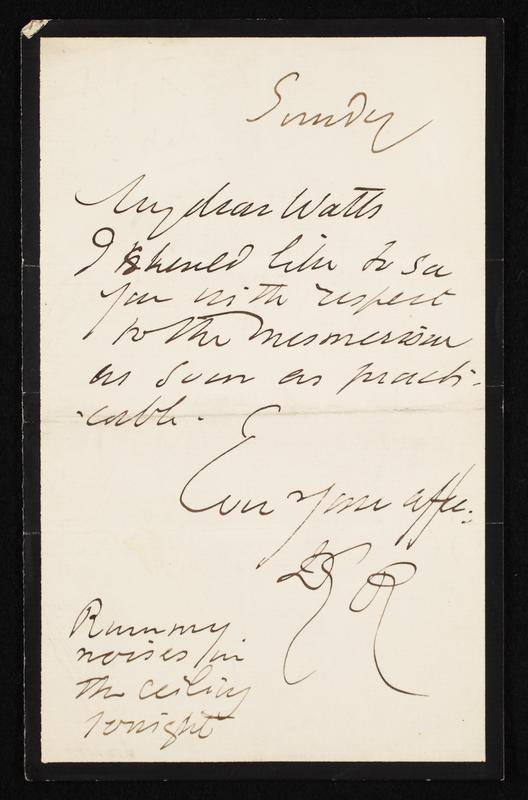 Sunday
My dear Watts
I should like to see
you with respect
to the mesmerism
as soon as practi-
-cable.
Ever your affec:
DGR
Rummy
noises in
the ceiling
tonight